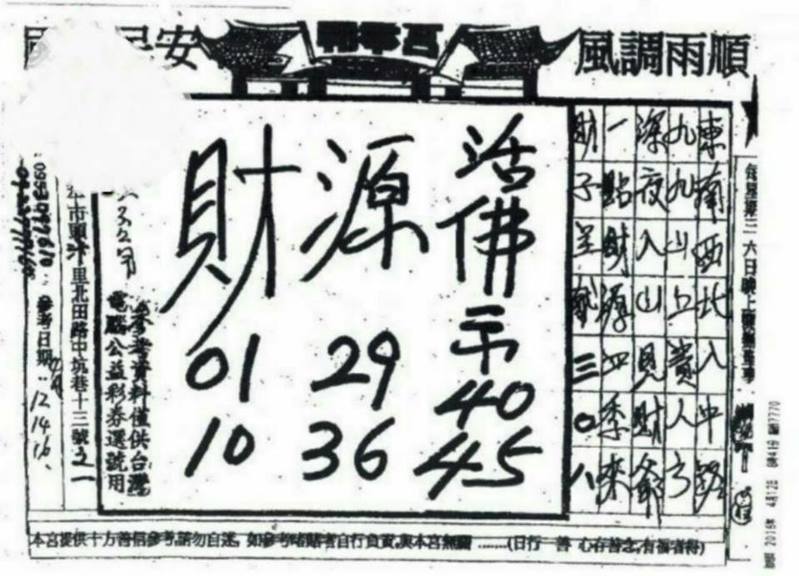 民安
風調雨順
東南西北入中路
九九山丘貴人
深夜入山見財爺
一點財源四季來
財子呈獻三0八
活佛示
源
財
01 29 40
10 36 45
參考資料僅供台灣
電腦公益彩券選號用
市頭汴里北田路中坑巷十三號之一
參考日期:
12.14.16.
本宮提供十方善信參考,請勿自迷, 如參考賭者自行負責,與本宮無關 ……(日行一善 心存善念,有福者得)